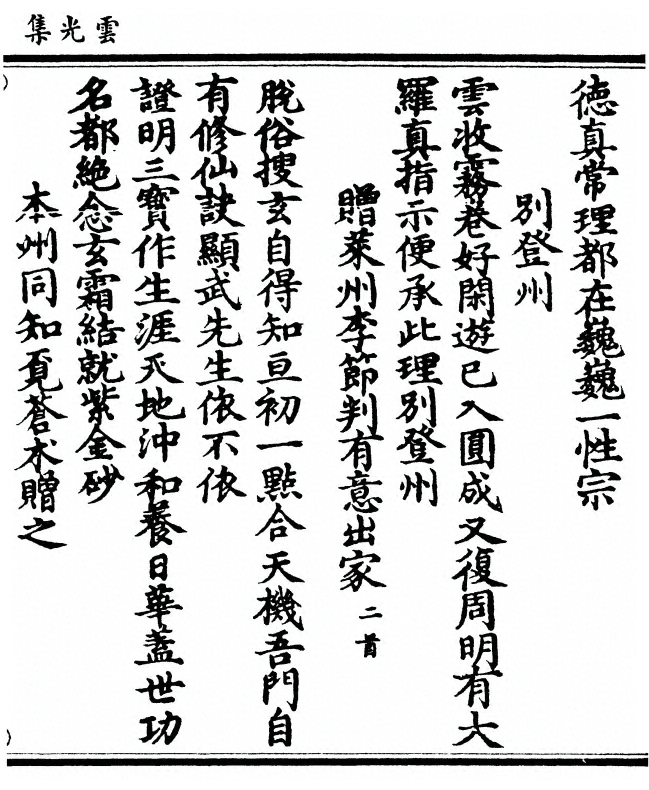 雲光集
德真常理都在巍巍一性宗
別登州
雲收霧卷好閑遊已入圓成又復周明有大
羅真指示便承此理別登州
贈萊州李節判有意出家二首
脫俗搜玄自得知亘初一點合天機吾門自
有修仙訣顯武先生依不依
證明三寶作生涯天地沖和養日華蓋世功
名都絕念玄霜結就紫金砂
本州同知覓蒼术贈之